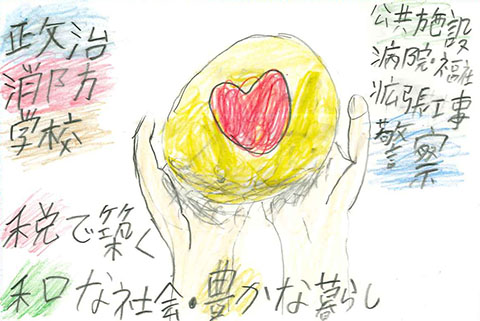 政治
消防
学校
公共施設
病院・福祉
拡張工事
警察
税で築く
和口な社会・豊かな暮らし